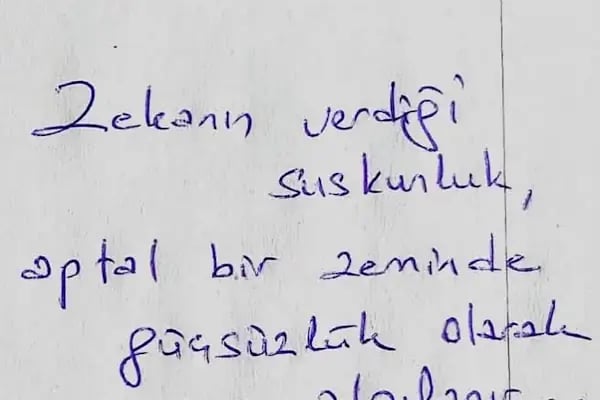 Zekanın verdiği
suskunluk,
aptal bir zeminde
güçsüzlük olarak
algılanır